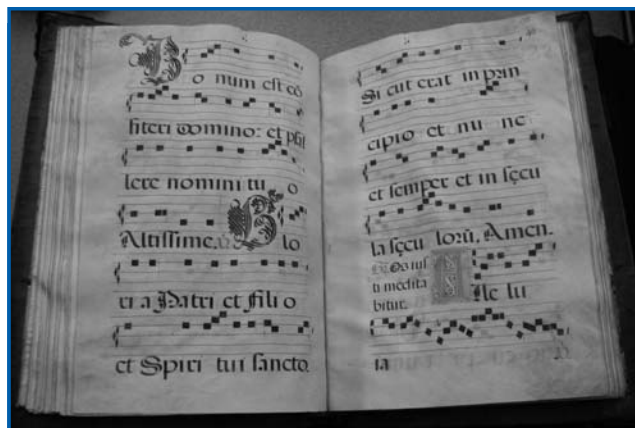 Bo num est cō
fiteri domino: et psal
lere nomini tu o
Altissime. Glo
ri a Patri et fili o
et Spiri tui sancto.
Si cut erat in prin
cipio et nu nc
et semper et in sęcu
la sęcu lorū, Amen.
Os ius
ti medita
bitur.
Alle lu
ia